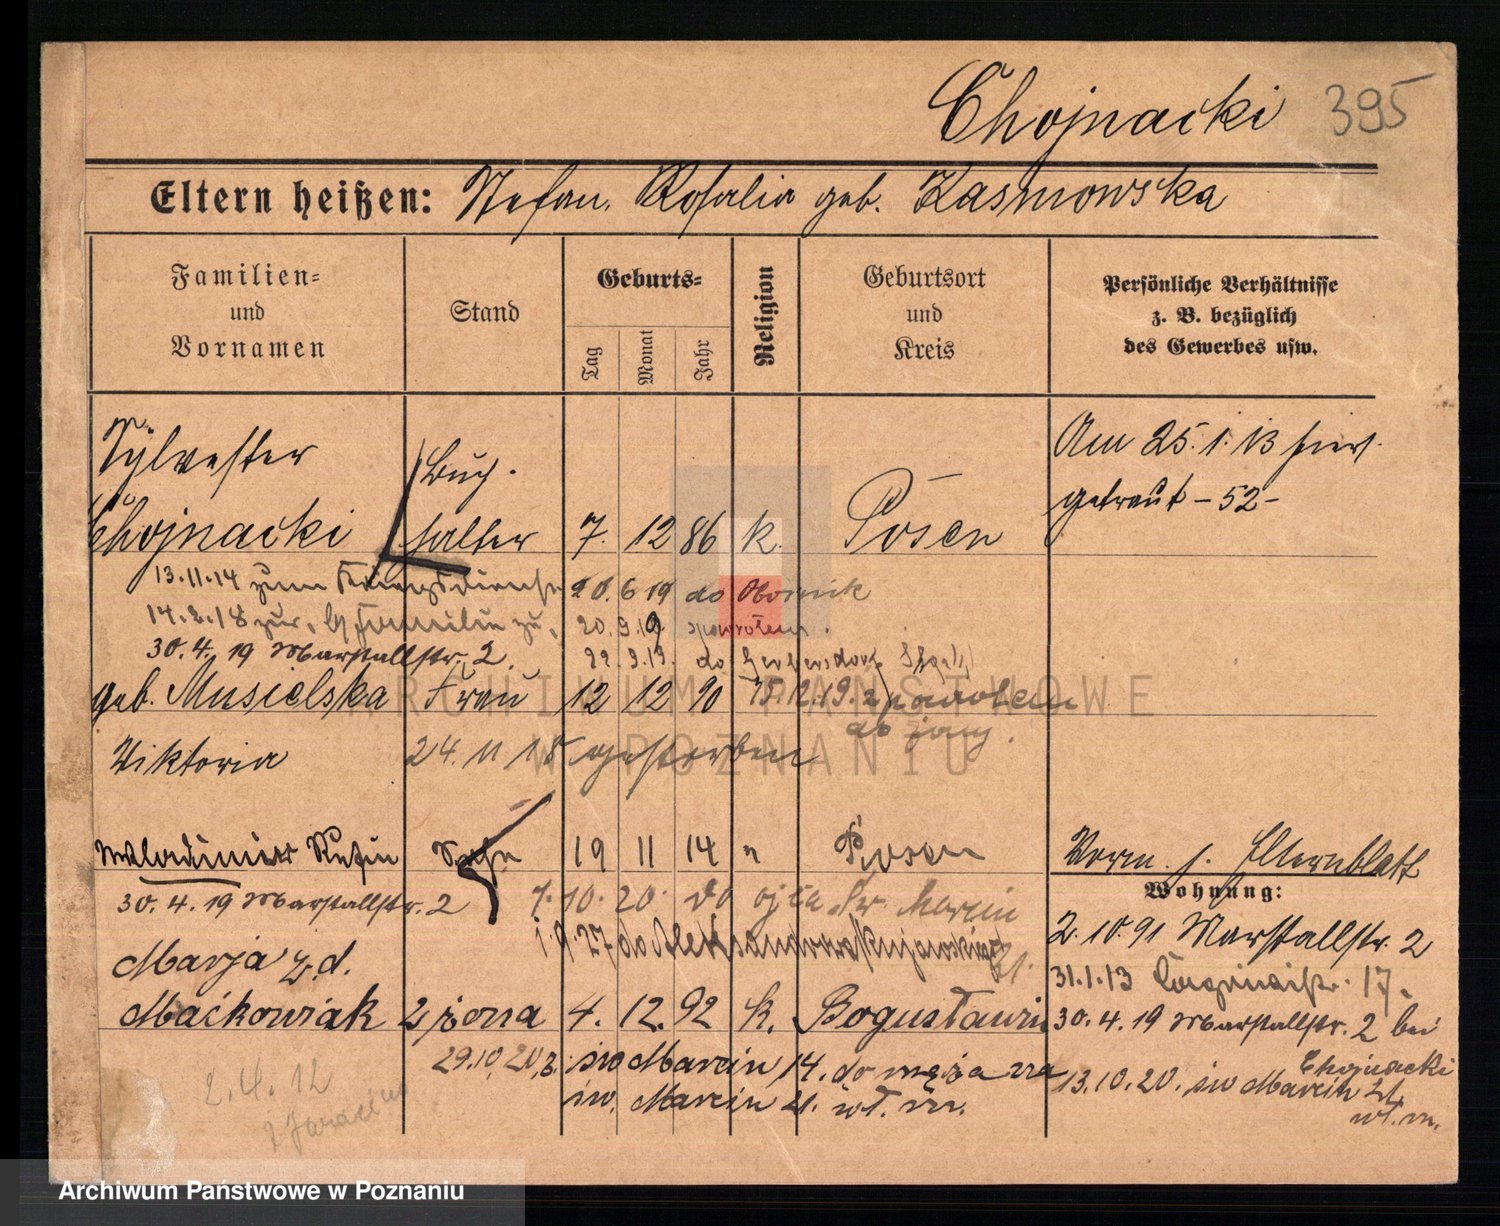 Chojnacki 395
Eltern heißen: Stefan, Rosalia geb. Kasmowska
Familien= und Vornamen
Stand
Geburts=
Tag
Monat
Jahr
Religion
Geburtsort und Kreis
Persönliche Verhältnisse
z. B. bezüglich
des Gewerbes usw.
Sylvester
Chojnacki
Buch-
halter
7. 12 86 k. Posen
Am 25.1.13 hier
getraut -52-
13.11.14 zum Kriegsdienste
20.6.19 do Obornik
14.2.18 zur. Familie
20.9.19 spowrotem.
30.4.19 Marstallstr. 2.
22.9.19. do
geb. Musielska Frau 12 12 90
15.12.19. z powrotem
do żony.
Viktoria 24.11 18 gestorben
Wladimir Stefin Sohn 19 11 14 " Posen
Vorm. s. Elternblatt
30.4.19 Marstallstr. 2
7.10.20. do ojca Św. Marcin
1.9.27 do Aleksandrowa Kujawskiego
Marja z d.
Maćkowiak 2 żona 4. 12. 92 k. Bogustawin
29.10.20.z. św Marcin 14. do męża na
św. Marcin 21. wł. m.
Wohnung:
2.10.91 Marstallstr. 2
31.1.13 17.
30.4.19 Marstallstr. 2 bei
Chojnacki
13.10.20. św Marcin 21
wł. m.
2.4.12
ARCHIWUM PAŃSTWOWE
W POZNANIU
Archiwum Państwowe w Poznaniu